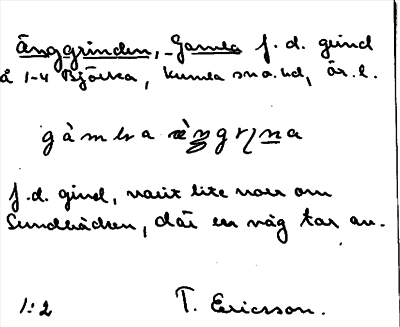 Änggrinden, Gamla f.d. grind
å 1-4 Björka, Kumla sn o. hd, Ör. l.
gàmɬa ǽŋgrɩna
f.d. grind, varit lite norr om
Sundbäcken, där en väg tar av.
1:2 T. Ericsson.